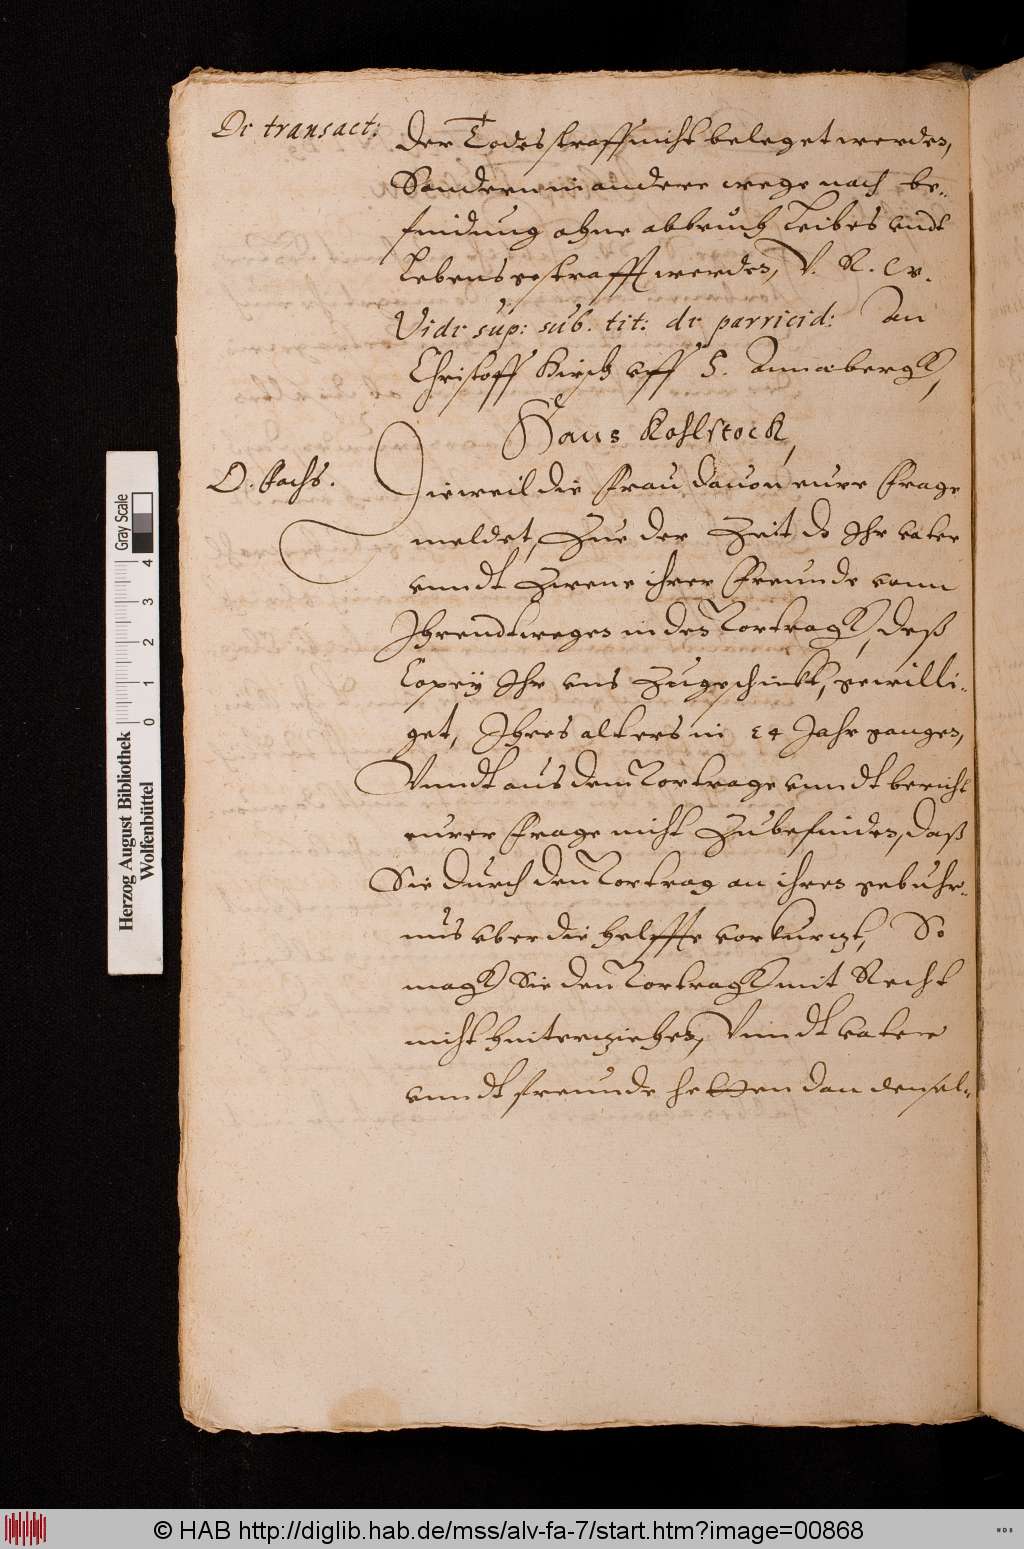 De transact:
der Todesstraff nicht beleget werden,
Sondern in andere wege nach be-
findung ohne abbruch Leibes undt
Lebens gestrafft werden, V. R. W.
Vide sup: sub. tit: de parricid: An
Christoff Kirsch uff S. Annabergk,
Hans Kohlstock,
D. Fachs.
Dieweil die Frau dauon eure Frage
meldet, Zue der Zeit do Ihr vater
vnndt Zwene ihrer Freunde vonn
Ihrendtwegen in den Vortragk, deß
Copey Ihr vns Zugeschickt, gewilli-
get, Ihres alters in 24 Jahr gangen,
Vnndt aus dem Vortrage vnndt bericht
eurer Frage nicht Zubefinden, daß
Sie durch den Vortrag an ihrer gebuhr-
nus vber die helffte vorkurtzt, So
magk Sie den Vortragk mit Recht
nicht hinterziehen, Vnndt vater
vnndt freunde hetten dan densel-
Herzog August Bibliothek
Wolfenbüttel
Gray Scale
0 1 2 3 4
© HAB http://diglib.hab.de/mss/alv-fa-7/start.htm?image=00868